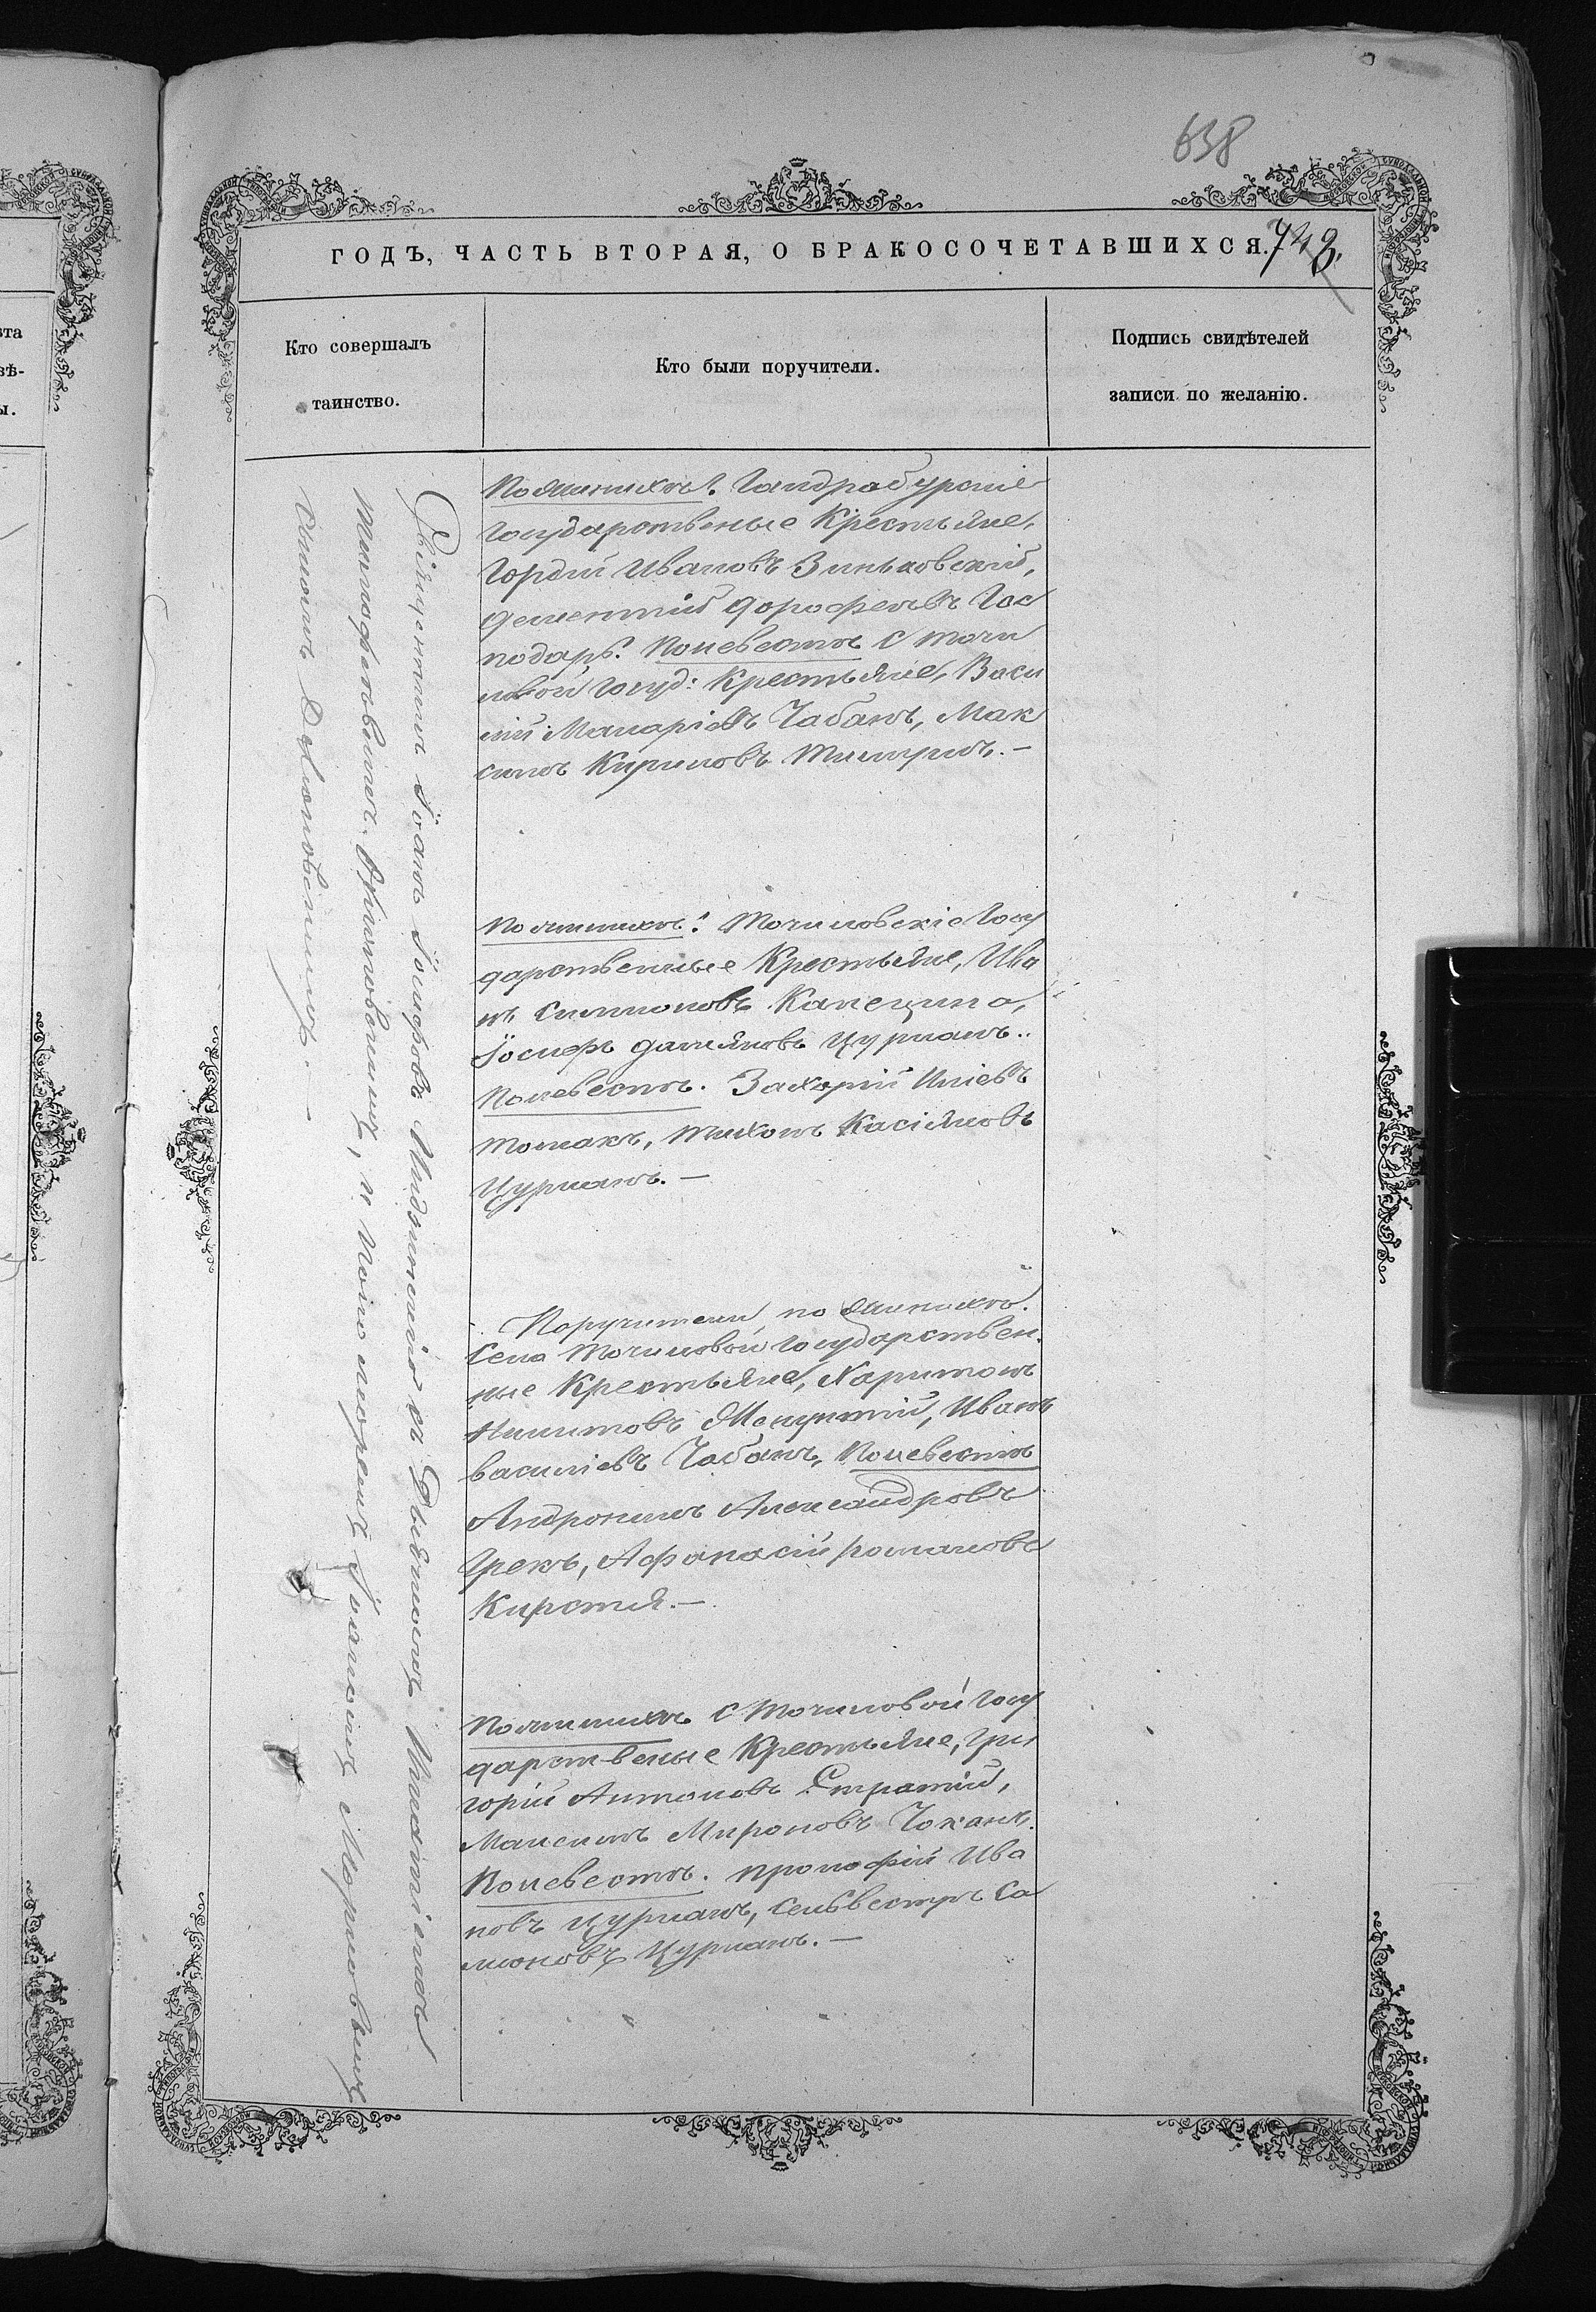 638
ГОДЪ, ЧАСТЬ ВТОРАЯ, О БРАКОСОЧЕТАВШИХСЯ. 742.
Кто совершалъ
таинство.
Кто были поручители.
Подпись свидѣтелей
записи по желанію.
Священникъ Іоанъ Іосифовъ съ Діякономъ
и Пономаремъ Іоанномъ
По женихѣ: Гандрабурскіе
Государственые Крестьяне,
Гордій Ивановъ Зиньковскій,
Дементій Дорофеевъ Гос
подарь. По невестѣ с Точи
ловой Госуд: Крестьяне, Васи
лій Макаріевъ Чабанъ, Мак
симъ Кириловъ
По женихѣ: Точиловскіе Госу
дарственные Крестьяне, Ива
нъ Симионовъ Капецина,
Іосифъ Дамяновъ Цурканъ..
По невестѣ. Захарій Иліевъ
Томакъ, Тихонъ Касіяновъ
Цурканъ.—
Поручители, по женихѣ.
Села Точиловой Государствен
ные Крестьяне, Харитонъ
Никитовъ Иванъ
Василіевъ Чабанъ, По невестѣ
Андроникъ Александровъ
Грекъ, Афанасій Романовъ
Кирстя.—
По женихѣ с Точиловой Госу
дарственые Крестьяне, Гри
горій Антоновъ Стратій,
Максимъ Мироновъ Чоканъ.
По невестѣ. Прокофій Ива
новъ Цурканъ, Сельвестръ Со
моновъ Цурканъ.—